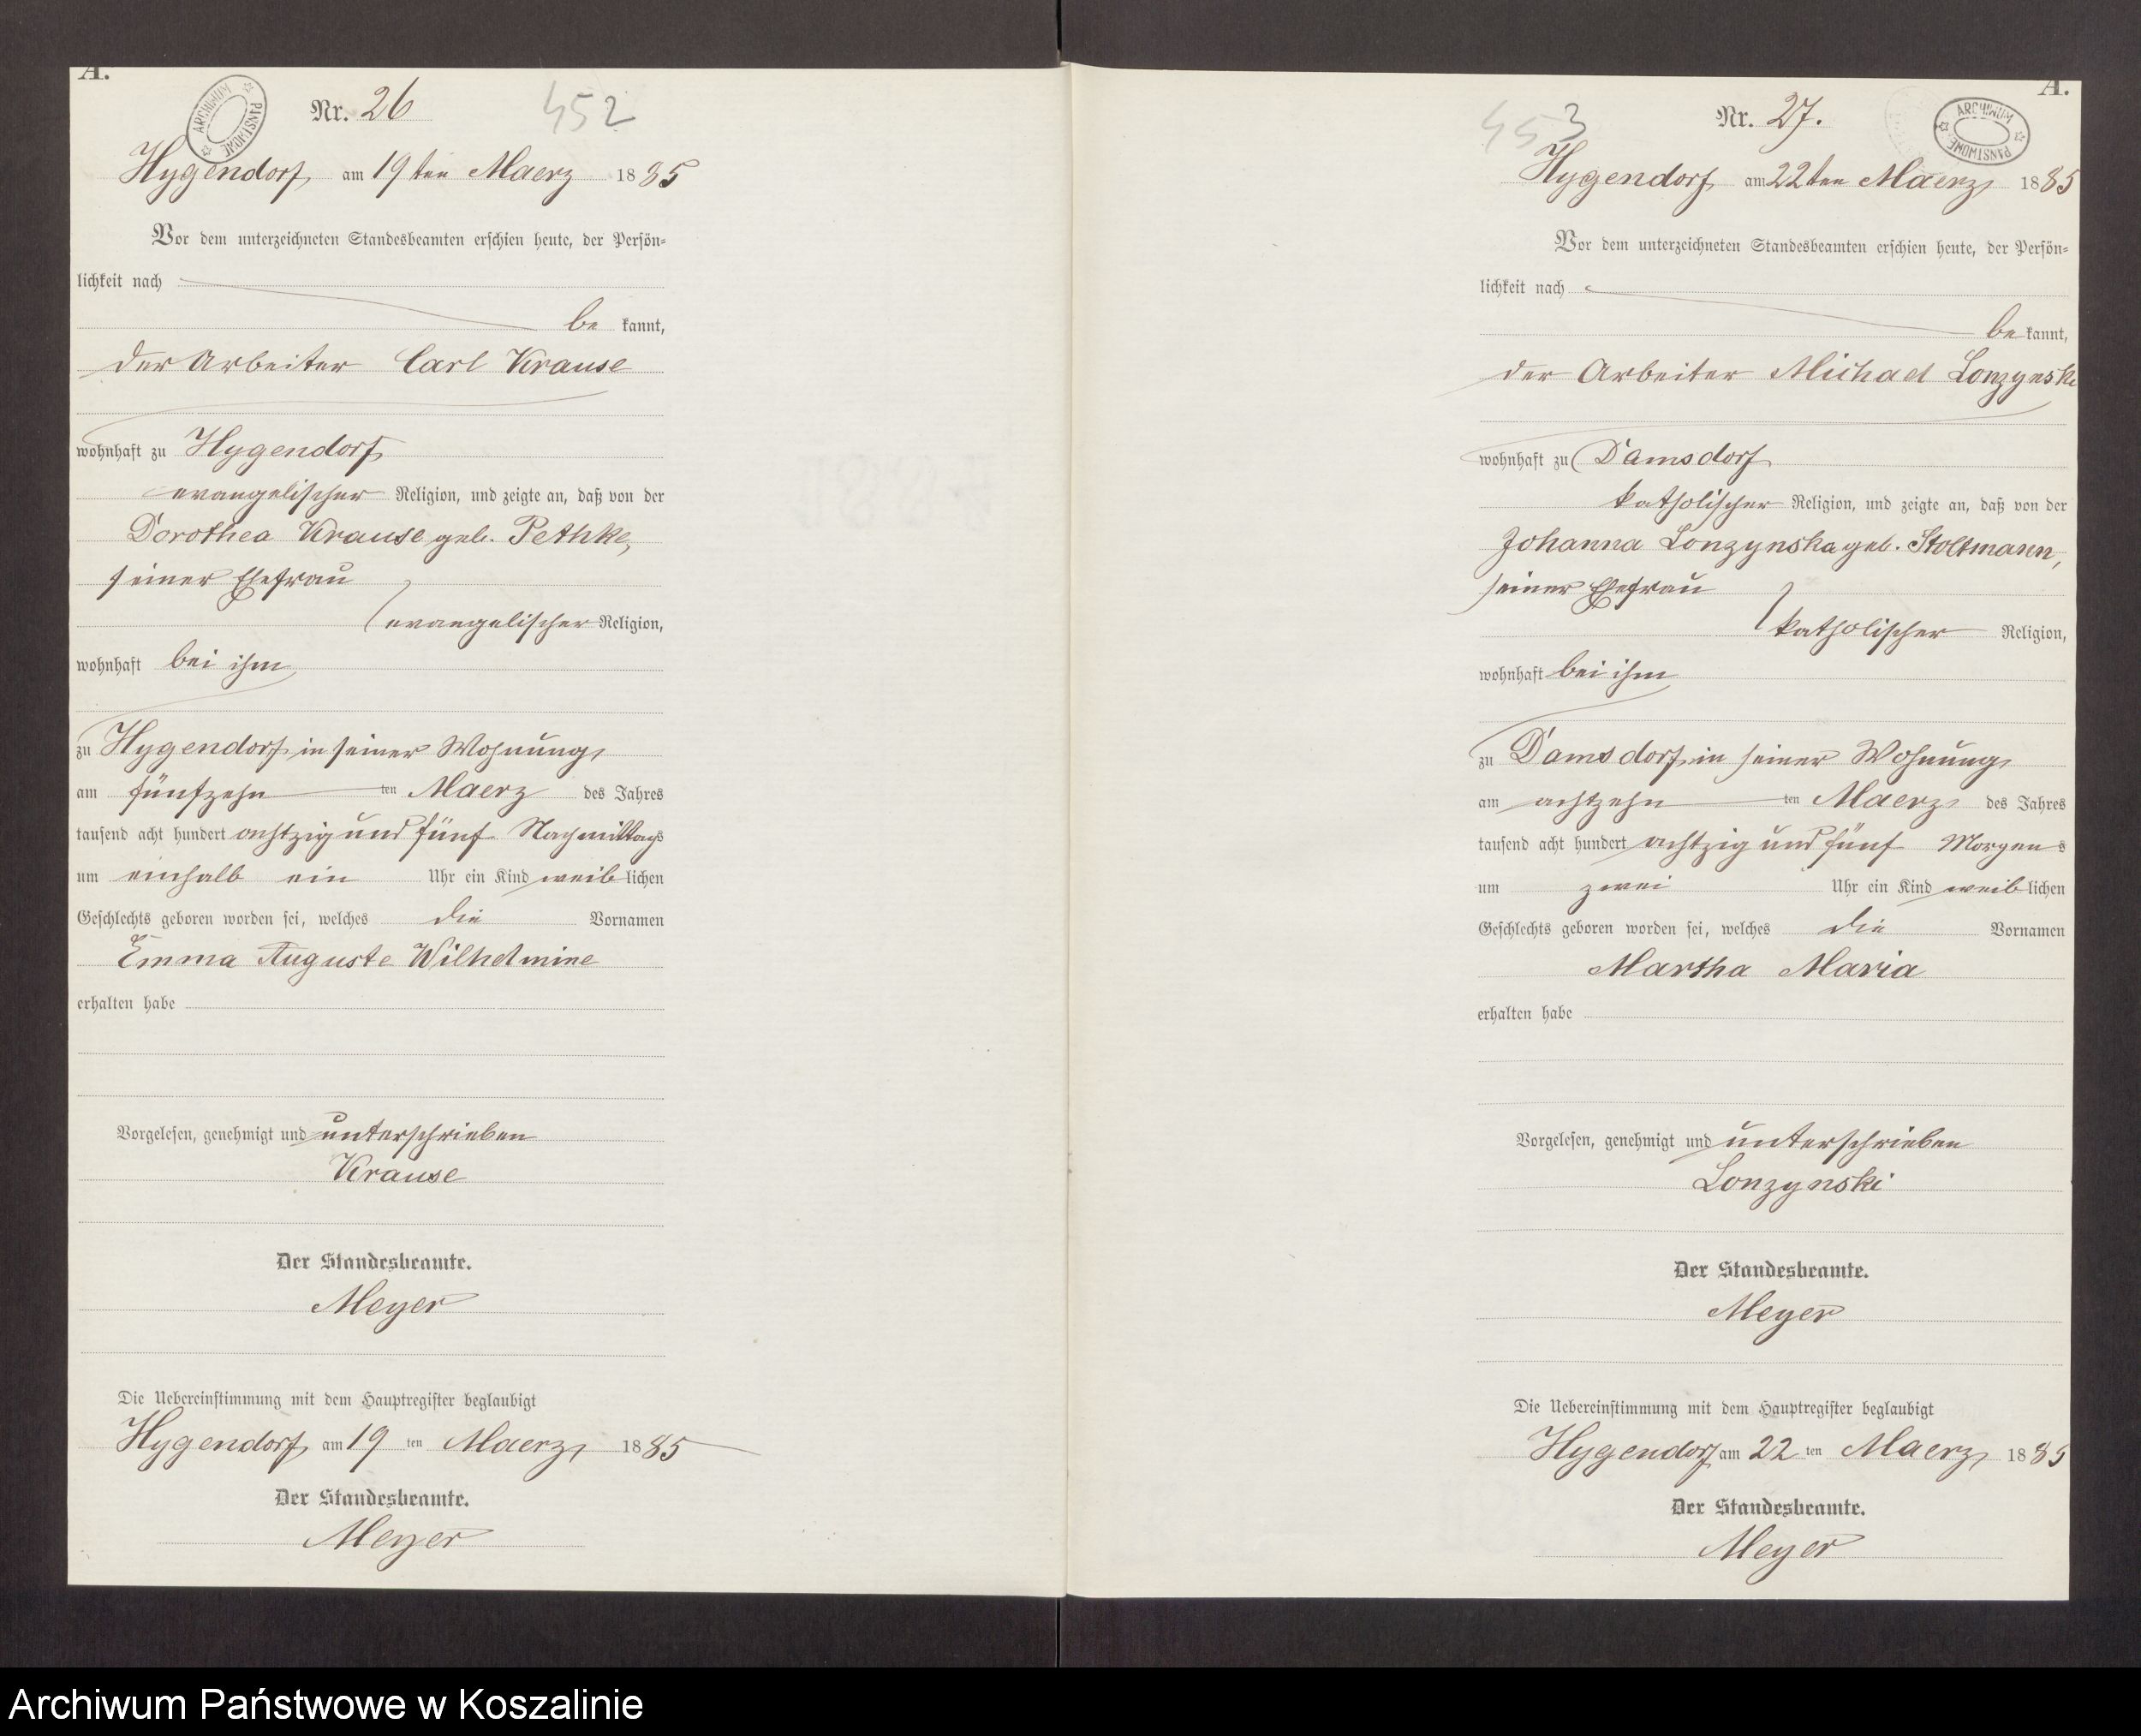 A.
ARCHIWUM PAŃSTWOWE
Nr. 26
452
Hygendorf, am 19ten Maerz 1885
Vor dem unterzeichneten Standesbeamten erschien heute, der Persön-
lichkeit nach
be kannt,
der Arbeiter Carl Krause
wohnhaft zu Hygendorf
evangelischer Religion, und zeigte an, daß von der
Dorothea Krause geb. Pethke,
seiner Ehefrau
evangelischer Religion,
wohnhaft bei ihm
zu Hygendorf, in seiner Wohnung,
am fünfzehn ten Maerz des Jahres
tausend acht hundert achtzig und fünf Nachmittags
um einhalb ein Uhr ein Kind weiblichen
Geschlechts geboren worden sei, welches die Vornamen
Emma Auguste Wilhelmine
erhalten habe
Vorgelesen, genehmigt und unterschrieben
Krause
Der Standesbeamte.
Meyer
Die Uebereinstimmung mit dem Hauptregister beglaubigt
Hygendorf, am 19 ten Maerz, 1885
Der Standesbeamte.
Meyer
A.
453
Nr. 27.
ARCHIWUM PAŃSTWOWE
Hygendorf, am 22ten Maerz, 1885
Vor dem unterzeichneten Standesbeamten erschien heute, der Persön-
lichkeit nach
be kannt,
der Arbeiter Michael Lonzynski
wohnhaft zu Damsdorf
katholischer Religion, und zeigte an, daß von der
Johanna Lonzynska geb. Stoltmann,
seiner Ehefrau
katholischer Religion,
wohnhaft bei ihm
zu Damsdorf, in seiner Wohnung,
am achtzehn ten Maerz des Jahres
tausend acht hundert achtzig und fünf Morgens
um zwei Uhr ein Kind weiblichen
Geschlechts geboren worden sei, welches die Vornamen
Martha Maria
erhalten habe
Vorgelesen, genehmigt und unterschrieben
Lonzynski
Der Standesbeamte.
Meyer
Die Uebereinstimmung mit dem Hauptregister beglaubigt
Hygendorf, am 22 ten Maerz, 1885
Der Standesbeamte.
Meyer
Archiwum Państwowe w Koszalinie